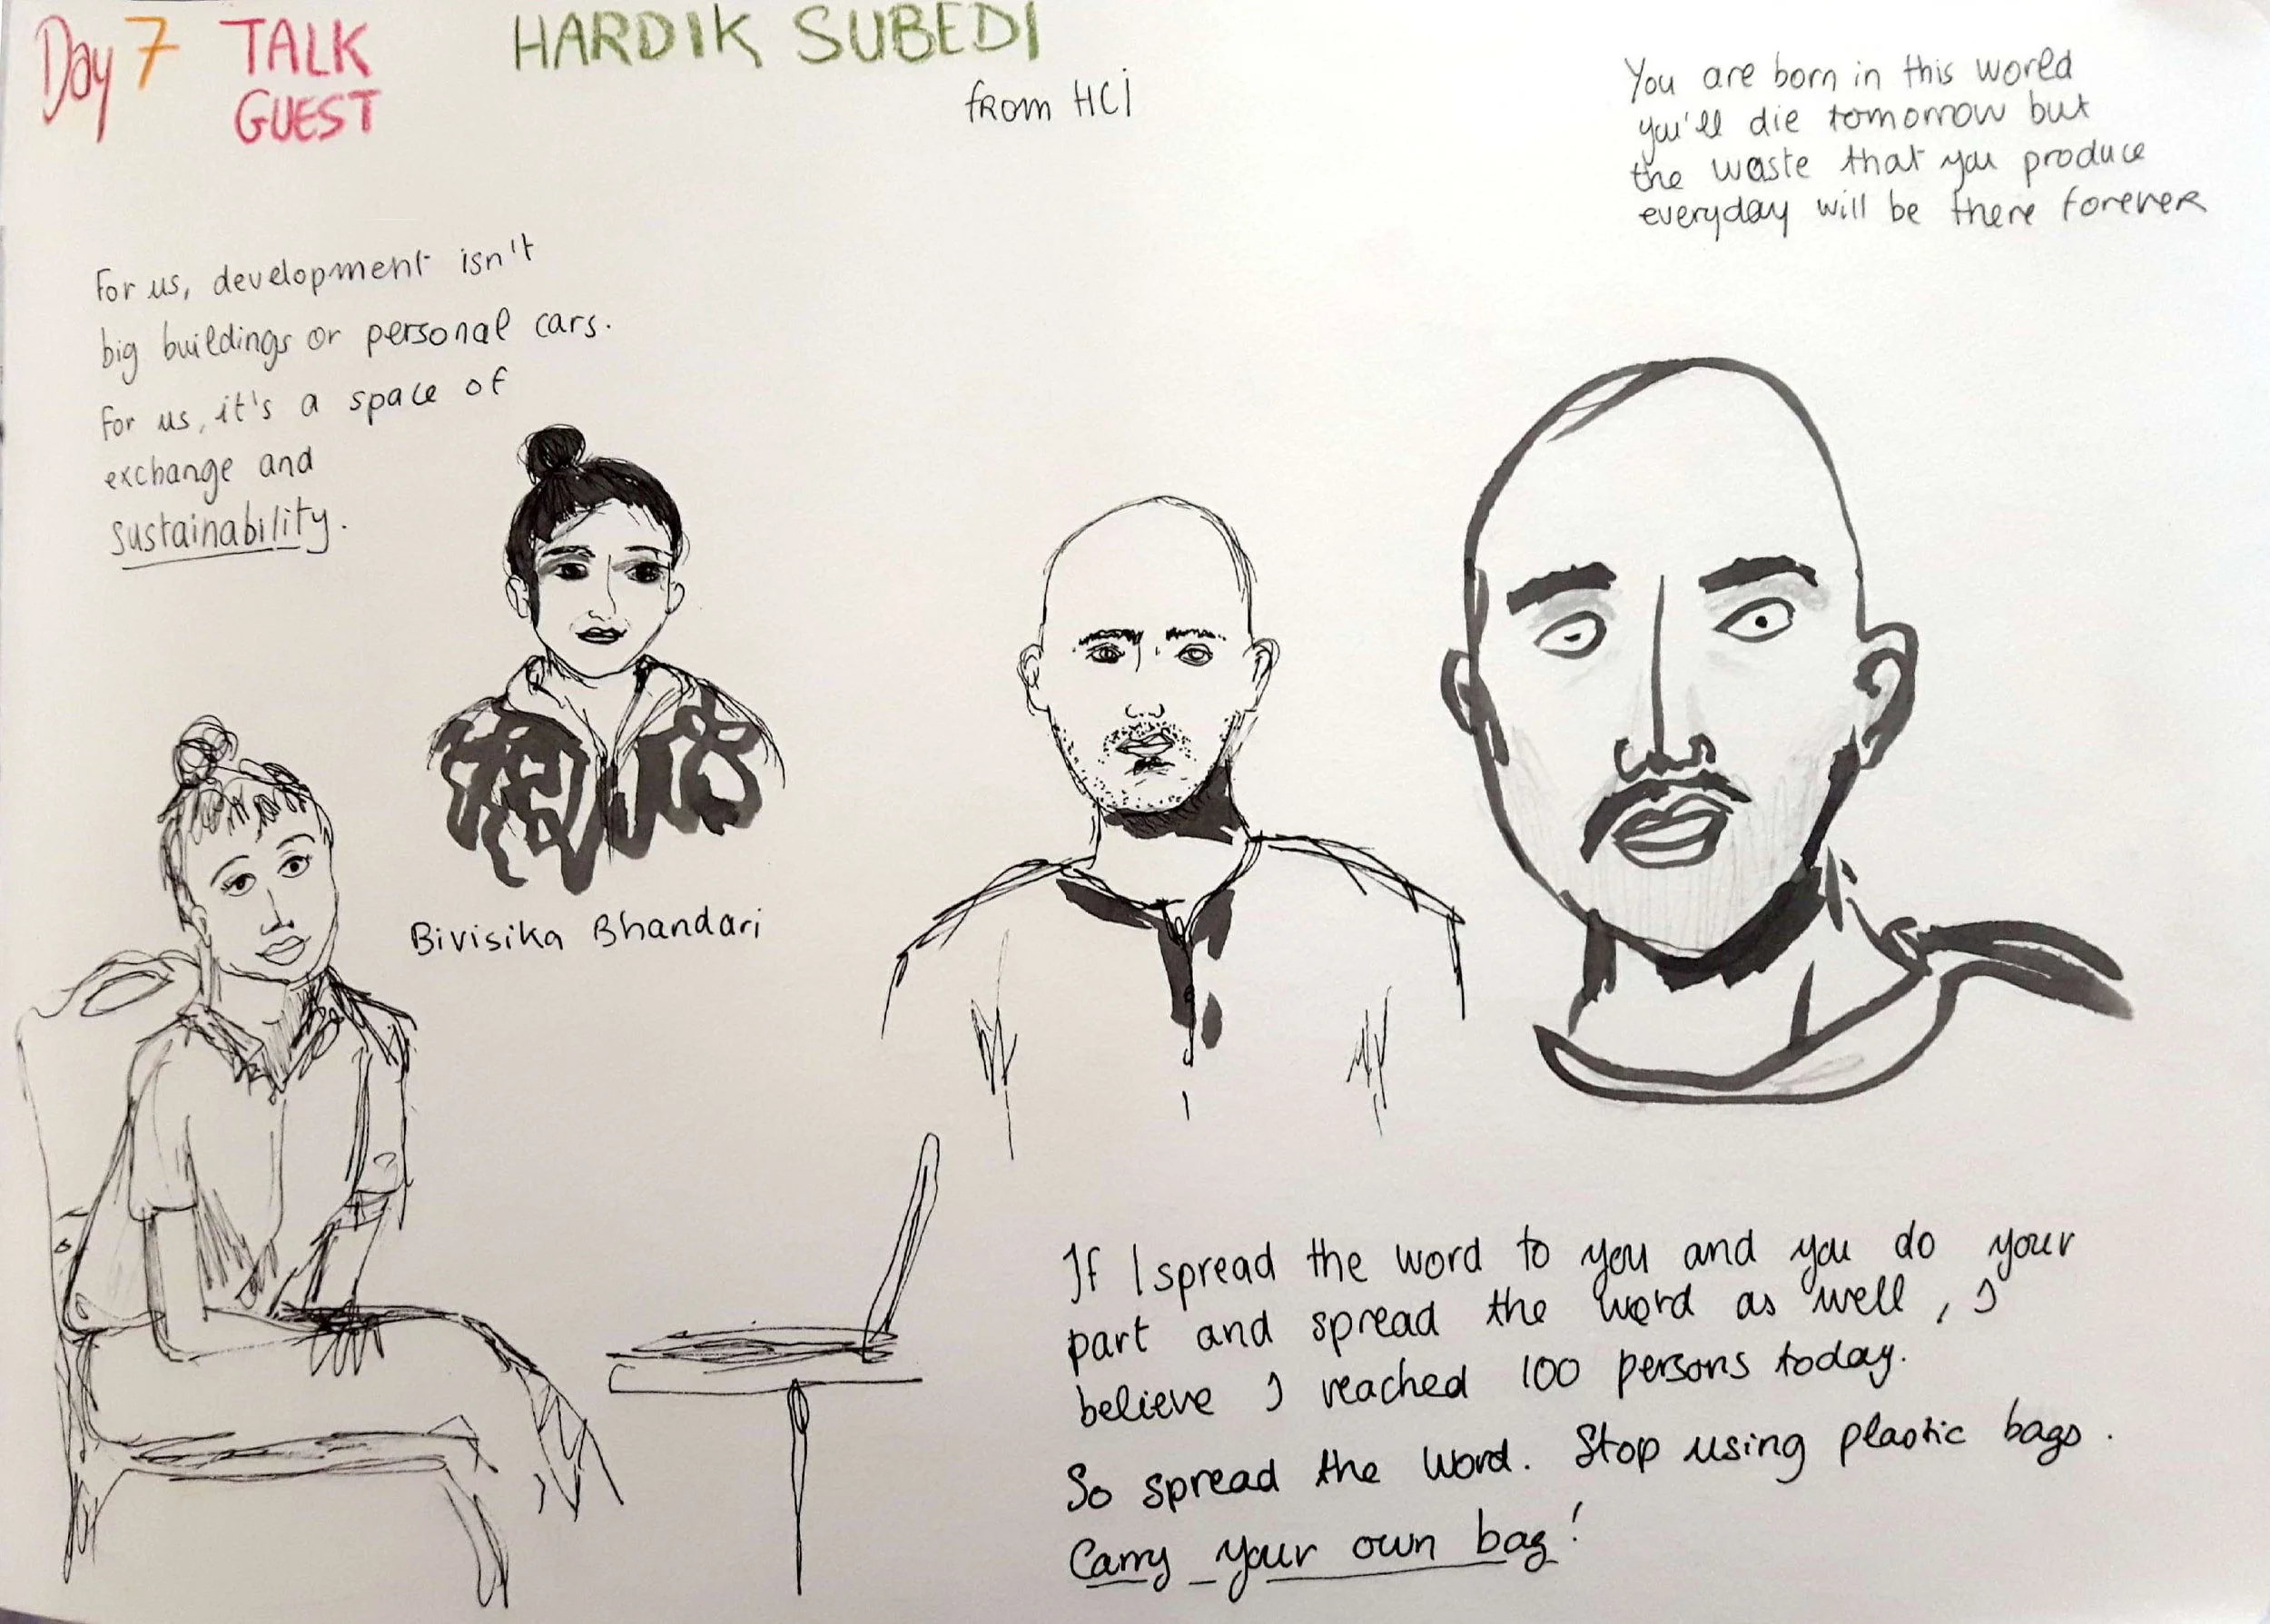 Day 7 TALK GUEST
HARDIK SUBEDI
from HCI
You are born in this world
you'll die tomorrow but
the waste that you produce
everyday will be there forever
For us, development isn't
big buildings or personal cars.
For us, it's a space of
exchange and
sustainability.
Bivisika Bhandari
If I spread the word to you and you do your
part and spread the word as well, I
believe I reached 100 persons today.
So spread the word. Stop using plastic bags.
Carry your own bag!